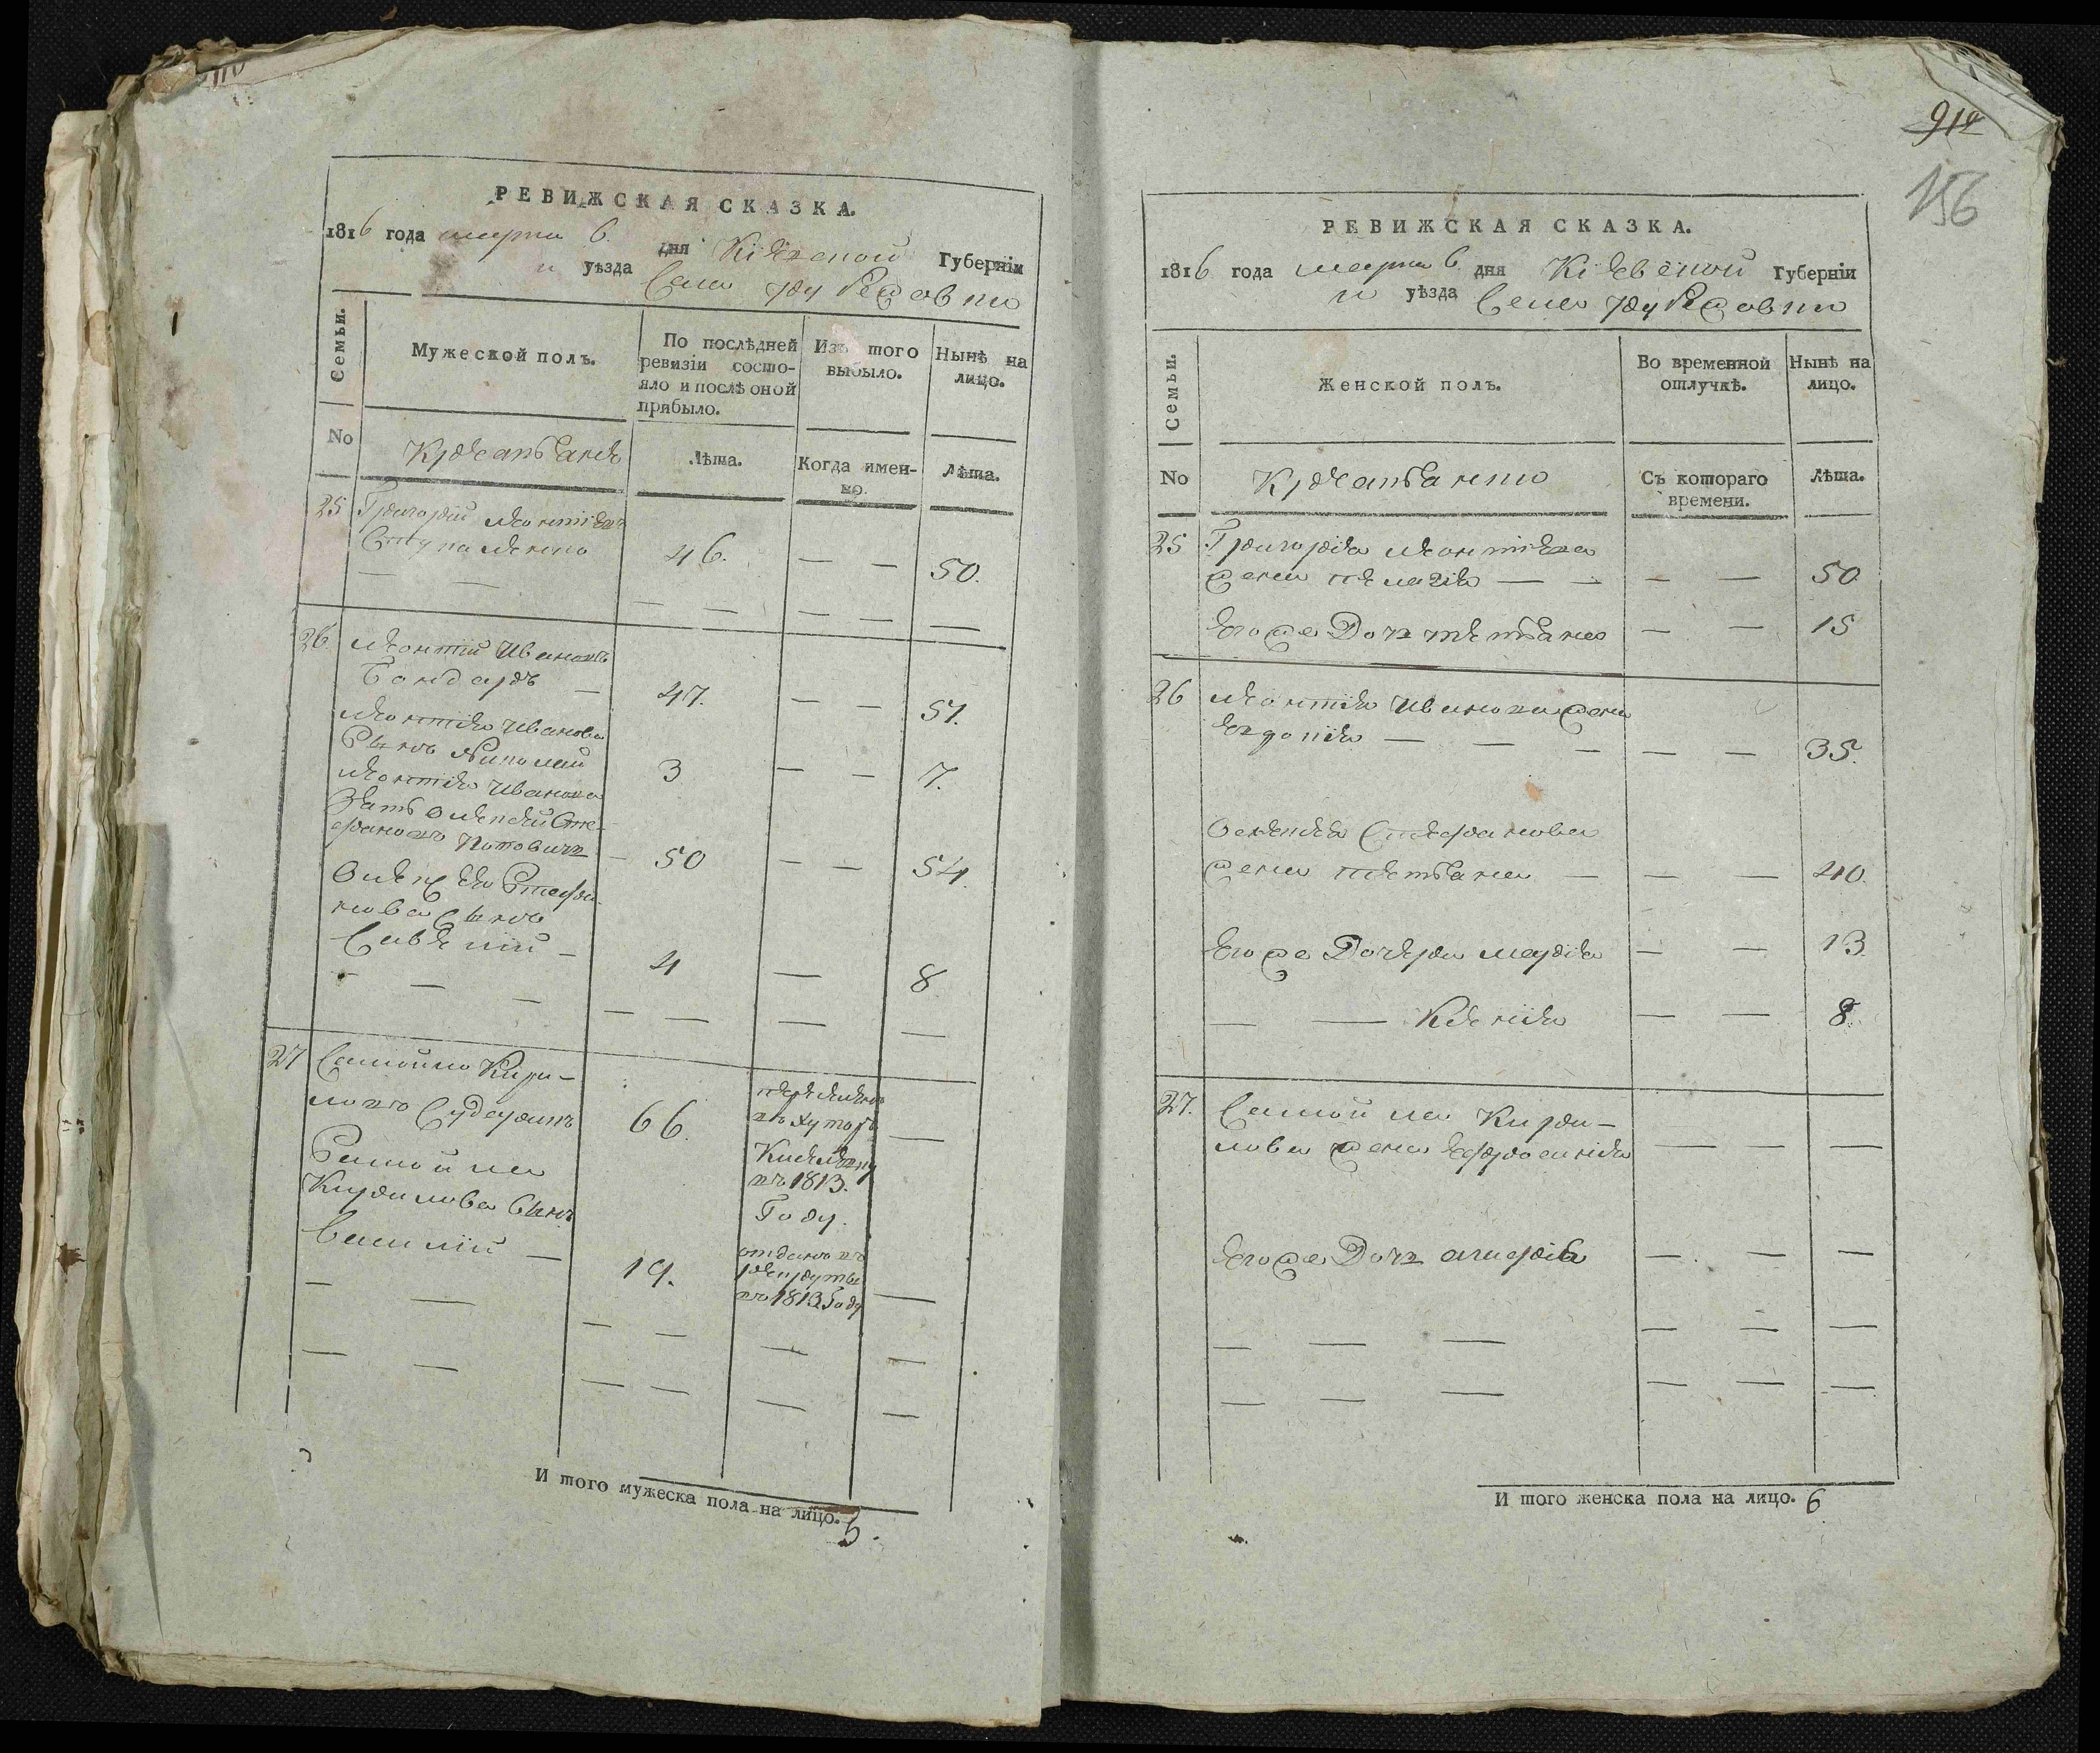 РЕВИЖСКАЯ СКАЗКА.
1816 года марта 6. дня Кіевской Губерніи
и уѣзда Села
Семьи.
Мужеской полъ.
По послѣдней
ревизіи состо-
яло и послѣ оной
прибыло.
Изъ того
выбыло.
Нынѣ на
лицо.
No
Крестьяне
Лѣта.
Когда имен-
но.
Лѣта.
25 Григорій Леонтіевъ
46. — — 50.
26 Леонтій Ивановъ
Бондарь — 47. — — 51.
Леонтія Иванова
Сынъ Николай 3 — — 7.
Леонтія Иванова
Зять Алексей Сте-
фановъ Поповичь — 50 — — 54.
Алексея Стефа-
нова Сынъ
Савелій — 4 — 8
27 Самойло Кири-
ловъ Сударикъ 66. —
въ Хуторъ
въ 1813.
Году.
Самойла
Кирилова Сынъ
Василій — 19. —
отданъ въ
рекруты
въ 1813 Году
И того мужеска пола на лицо. 5.
914
156
РЕВИЖСКАЯ СКАЗКА.
1816 года марта 6 дня Кіевской Губерніи
и уѣзда Села
Семьи.
Женской полъ.
Во временной
отлучкѣ.
Нынѣ на
лицо.
No
Крестьянки
Съ котораго
времени.
Лѣта.
25 Григорія Леонтіева
жена Пелагія — — — — 50
Егоже Дочь Тетьяна — — 15
26 Леонтія Иванова жена
Евдокія — — — — — 35.
Алексея Стефанова
жена Тетьяна — — — 40.
Егоже Дочери Марія — — 13.
— — Ксенія — — 8.
27. Самойла Кири-
лова жена Ефросинія — — —
Егоже Дочь Агафія — — —
И того женска пола на лицо. 6